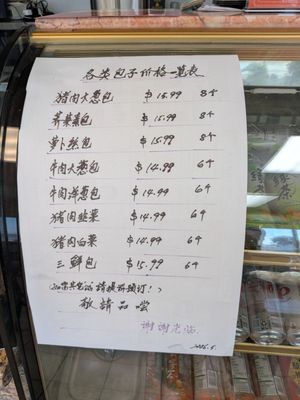 各类包子价格一览表
猪肉大葱包 $15.99 8个
荠菜蒸包 $15.99 8个
萝卜丝包 $15.99 8个
牛肉大葱包 $14.99 6个
牛肉洋葱包 $14.99 6个
猪肉韭菜 $14.99 6个
猪肉白菜 $14.99 6个
三鲜包 $15.99 6个
请提前预订!)
敬请品嚐
谢谢光临